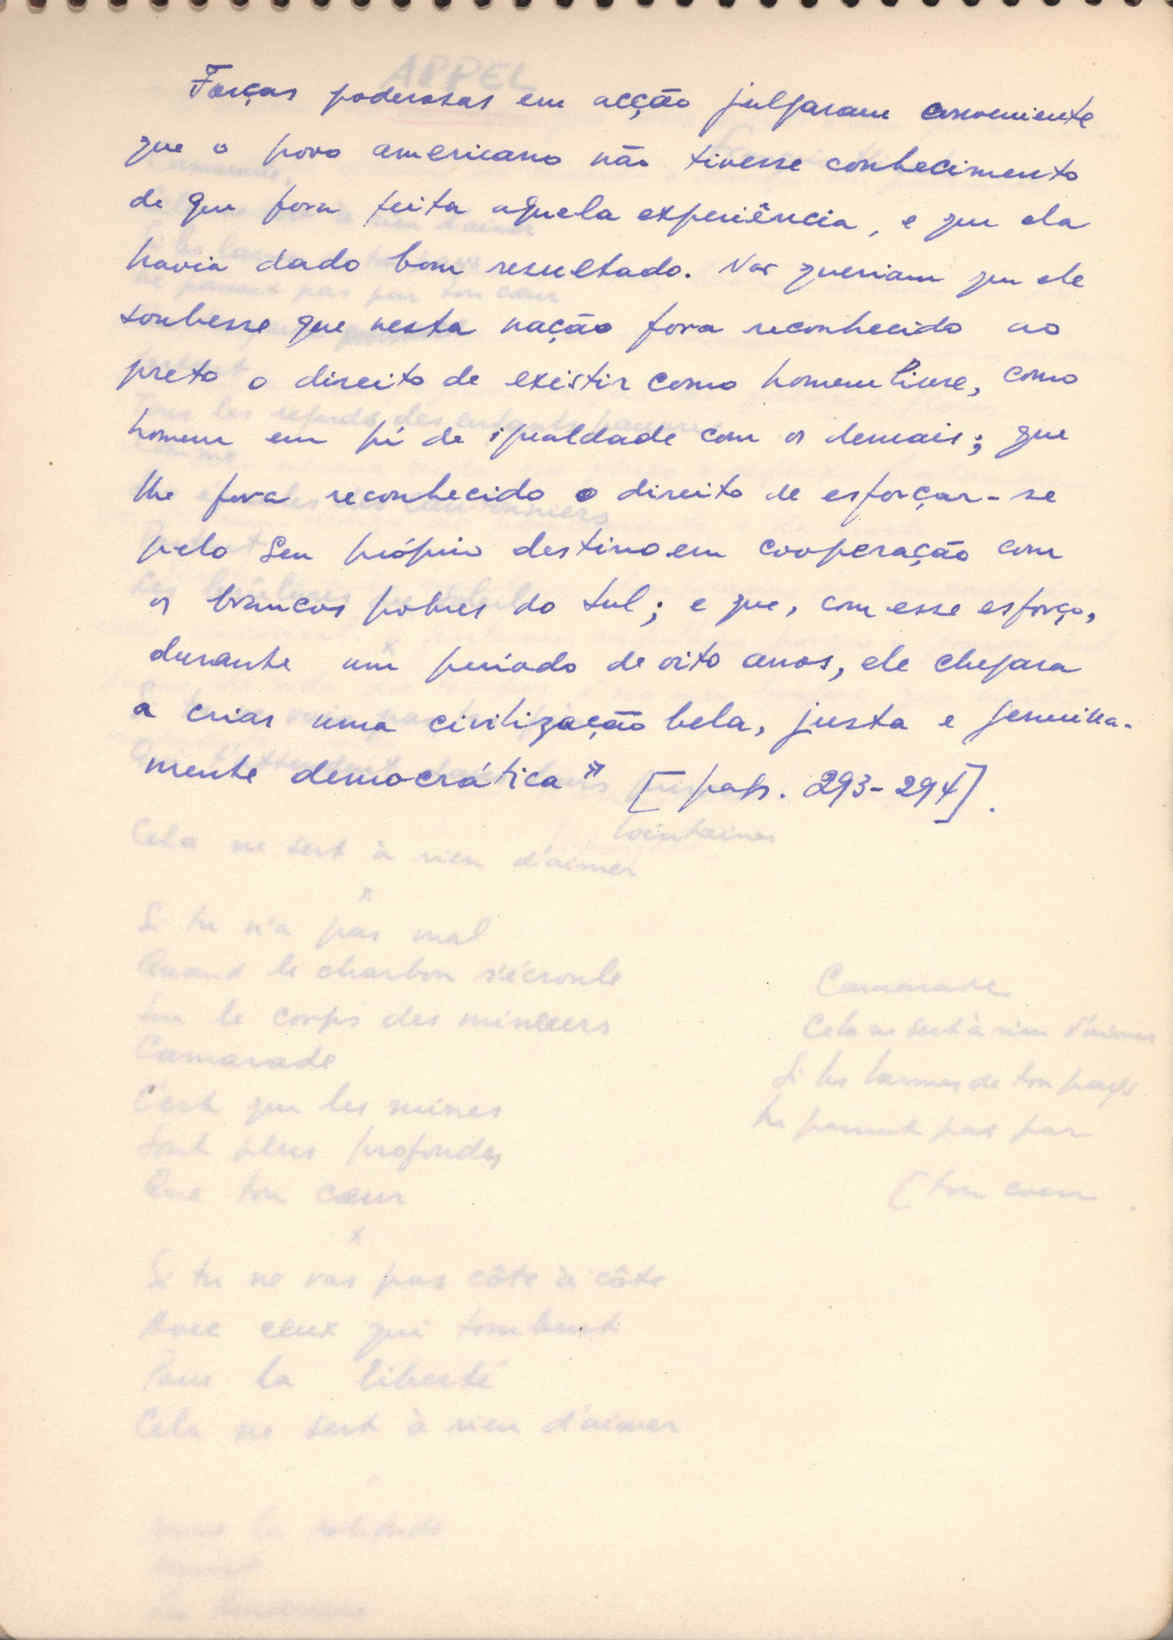 Forças poderosas em acção julgaram conveniente
que o povo americano não tivesse conhecimento
de que fora feita aquela experiência, e que ela
havia dado bom resultado. Nao queriam que ele
soubesse que nesta nação fora reconhecido ao
preto o direito de existir como homem livre, como
homem em pé de igualdade com os demais; que
lhe fora reconhecido o direito de esforçar-se
pelo seu próprio destino em cooperação com
os brancos pobres do sul; e que, com esse esforço,
durante um periodo de oito anos, ele chegara
a criar uma civilização bela, justa e genuina-
mente democrática» [pags. 293-294].
APPEL
lointaines
Cela ne sert à rien d'aimer
x
Si tu n'a pas mal
Quand le charbon s'écroule
Sur le corps des mineurs
Camarade
C'est que les mines
Sont plus profondes
Que ton cœur
x
Si tu ne vas pas côte à côte
Avec ceux qui tombent
Pour la liberté
Cela ne sert à rien d'aimer
Camarade
Cela ne sert à rien d'aimer
Si les larmes de ton pays
Ne passent pas par
[ton coeur.